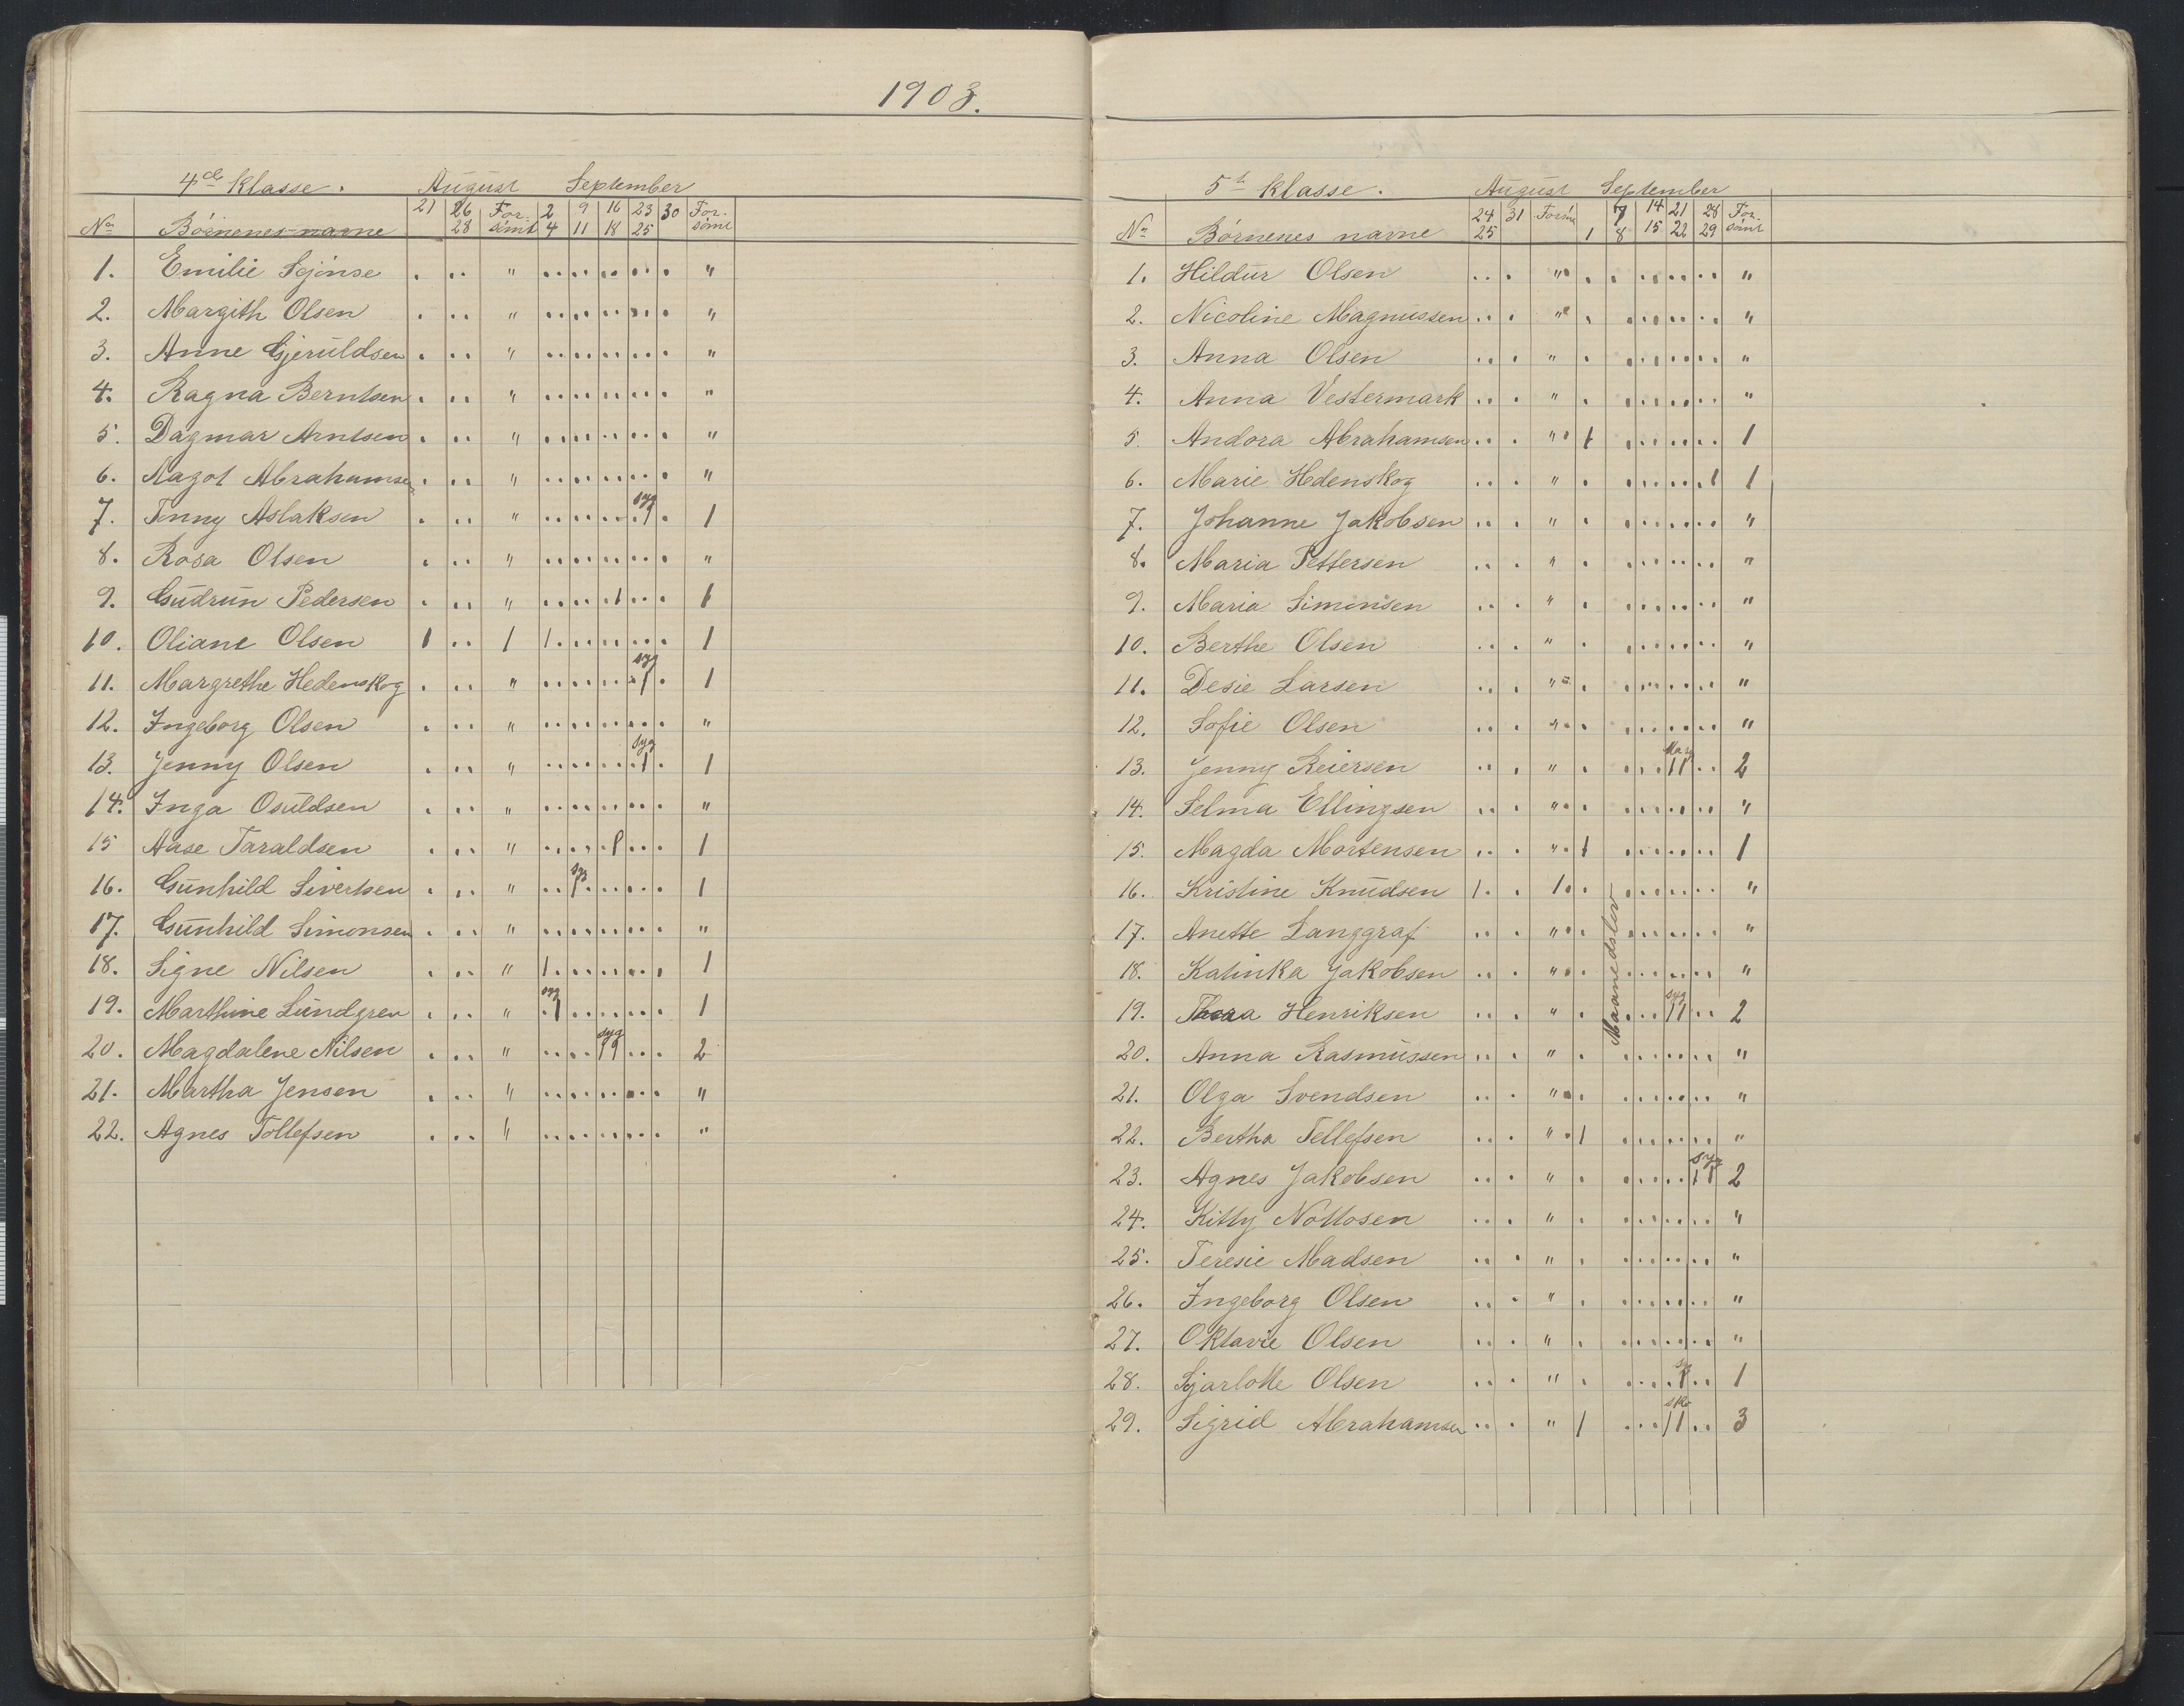 1903.
4de Klasse. August September
21 26 For- 2 9 16 23 30 For-
No Börnenes navne 28 sömt 4 11 18 25 sömt
1. Emilie Sjönse . .. " .. .. .. .. . "
2. Margith Olsen . .. " .. .. .. .. . "
3. Anne Gjeruldsen . .. " .. .. .. .. . "
4. Ragna Berntsen . .. " .. .. .. .. . "
5. Dagmar Arntsen . .. " .. .. .. .. . "
6. Magot Abrahamsen . .. " .. .. .. .. . "
syg
7. Tenny Aslaksen . .. " .. .. .. .1 . 1
8. Rosa Olsen . .. " .. .. .. .. . "
9. Gudrun Pedersen . .. " .. .. .1 .. . 1
10. Oliane Olsen 1 .. 1 1. .. .. .. . 1
syg
11. Margrethe Hedenskog . .. " .. .. .. .1 . 1
12. Ingeborg Olsen . .. " .. .. .. .. . "
syg
13. Jenny Olsen . .. " .. .. .. .1 . 1
14. Inga Osuldsen . .. " .. .. .. .. . "
15 Aase Taraldsen . .. " .. .. .1 .. . 1
syg
16. Gunhild Sivertsen . .. " .. 1. .. .. . 1
17. Gunhild Simonsen . .. " .. .. .. .. . "
18. Signe Nilsen . .. " 1. .. .. .. . 1
syg
19. Marthine Lundgren . .. " .1 .. .. .. . 1
syg
20. Magdalene Nilsen . .. " .. .. 11 .. . 2
21. Martha Jensen . .. " .. .. .. .. . "
22. Agnes Tollefsen . .. " .. .. .. .. . "
5te Klasse. August September
24 31 Forsöm 7 14 21 28 For-
No Börnenes navne 25 1 8 15 22 29 sömt
1. Hildur Olsen .. . " . . .. .. .. "
2. Nicoline Magnussen .. . " . . .. .. .. "
3. Anna Olsen .. . " . . .. .. .. "
4. Anna Vestermark .. . " . . .. .. .. "
5. Andora Abrahamsen .. . " 1 . .. .. .. 1
6. Marie Hedenskog .. . " . . .. .. .1 1
7. Johanne Jakobsen .. . " . . .. .. .. "
8. Maria Pettersen .. . " . . .. .. .. "
9. Maria Simonsen .. . " . . .. .. .. "
10. Berthe Olsen .. . " . . .. .. .. "
11. Desie Larsen .. . " . . .. .. .. "
12. Sofie Olsen .. . " . . .. .. .. "
13. Jenny Reiersen .. . " . . .. 11 .. 2
14. Selma Ellingsen .. . " . . .. .. .. "
15. Magda Mortensen .. . " 1 . .. .. .. 1
16. Kristine Knudsen 1. . 1 . . .. .. .. "
Maanedslov
17. Anette Langgraf .. . " . . .. .. .. "
18. Katinka Jakobsen .. . " . . .. .. .. "
syg
19. Thora Henriksen .. . " . . .. 11 .. 2
20. Anna Rasmussen .. . " . . .. .. .. "
21. Olga Svendsen .. . " . . .. .. .. "
22. Bertha Tellefsen .. . " 1 . .. .. .. "
syg
23. Agnes Jakobsen .. . " . . .. .. 11 2
24. Kitty Nottosen .. . " . . .. .. .. "
25. Teresie Madsen .. . " . . .. .. .. "
26. Ingeborg Olsen .. . " . . .. .. .. "
27. Oktavie Olsen .. . " . . .. .. .. "
syg
28. Sjarlotte Olsen .. . " . . .. .1 .. 1
sko
29. Sigrid Abrahamsen .. . " 1 . .. 11 .. 3